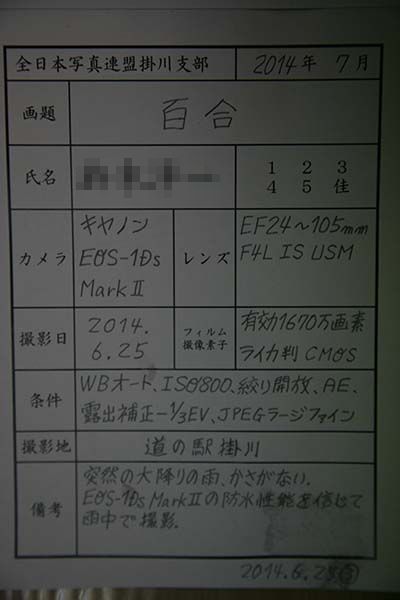 全日本写真連盟掛川支部 2014年 7月
画題 百合
氏名 1 2 3
4 5 佳
カメラ キヤノン
EOS-1Ds
Mark II
レンズ EF24〜105mm
F4L IS USM
撮影日 2014.
6.25
フィルム
撮像素子
有効1670万画素
ライカ判 CMOS
条件 WBオート、ISO800、絞り開放、AE、
露出補正-1/3EV、JPEGラージファイン
撮影地 道の駅掛川
備考 突然の大降りの雨、かさがない。
EOS-1Ds Mark IIの防水性能を信じて
雨中で撮影。
2014.6.25